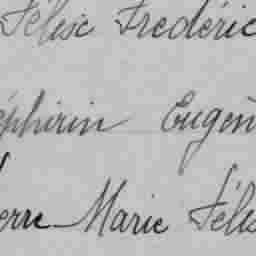 Félix Frédéric
éphirin Eugèn
erre Marie Féli